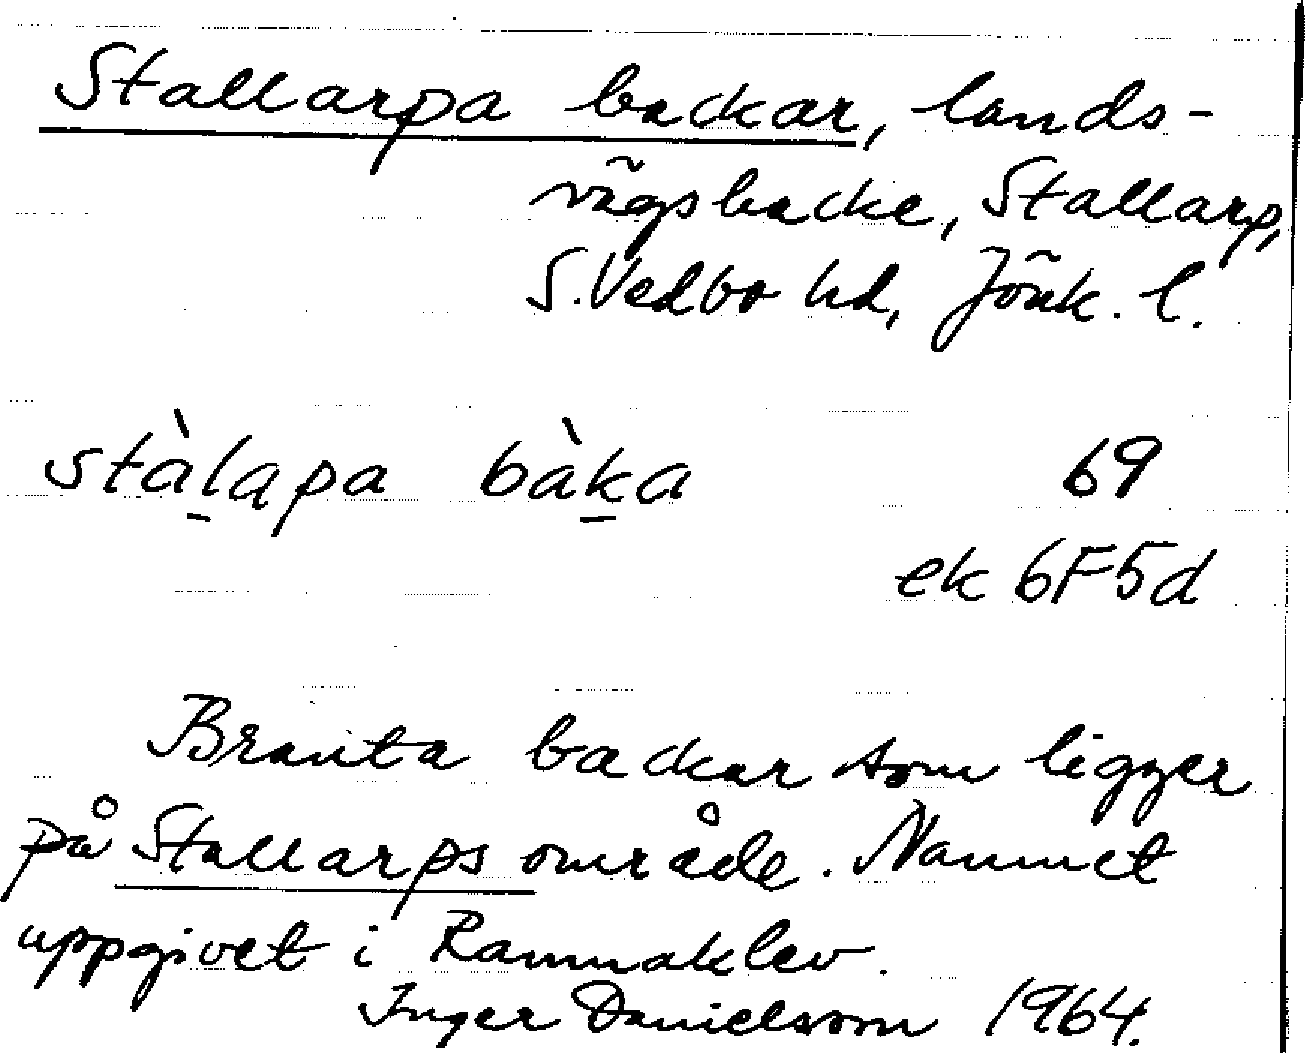 Stallarpa backar, lands-
vägsbacke, Stallarp,
S. Vedbo hd, Jönk. l.
stàl̠apa bàk̠a 69
ek 6F5d
Branta backar som ligger
på Stallarps område. Namnet
uppgivet i Rammaklev.
Inger Danielsson 1964.